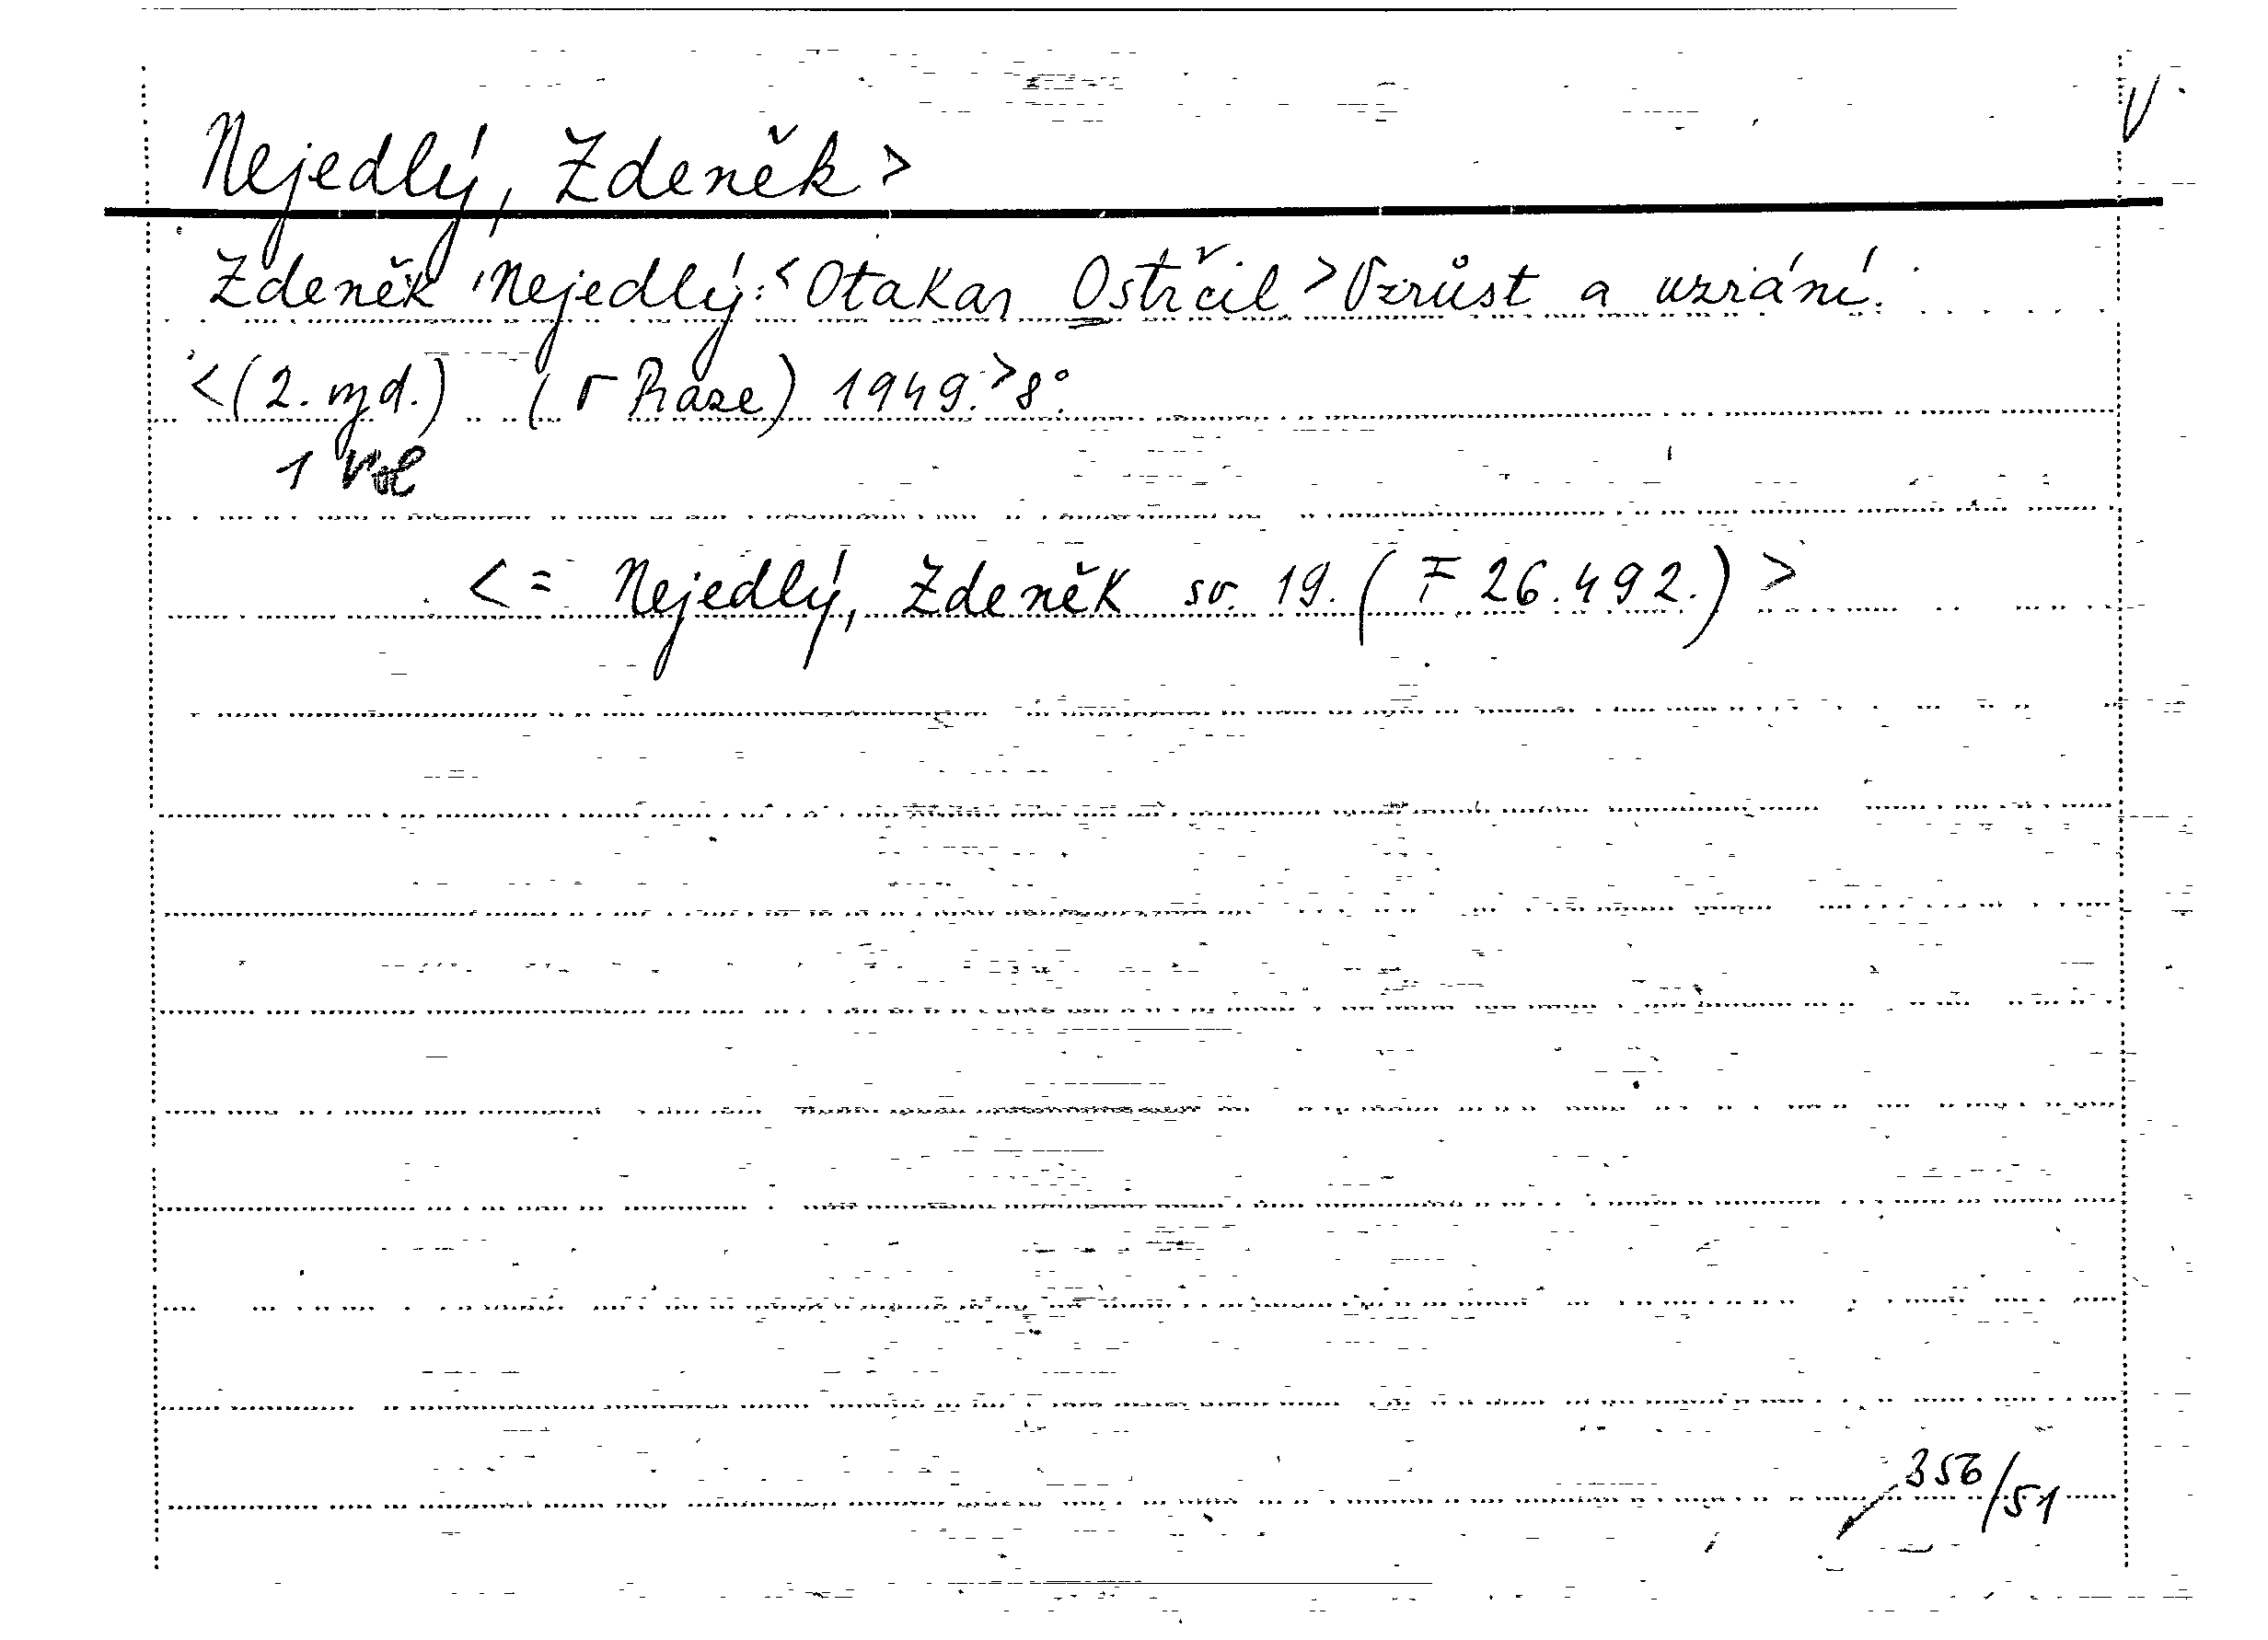 V
Nejedlý, Zdeněk >
Zdeněk Nejedlý: < Otakar Ostrčil > Vzrůst a uzrání.
< (2. vyd.) (V Praze) 1949. > 8°.
1 Vol
< = Nejedlý, Zdeněk sv. 19. (F 26.492.) >
356/51